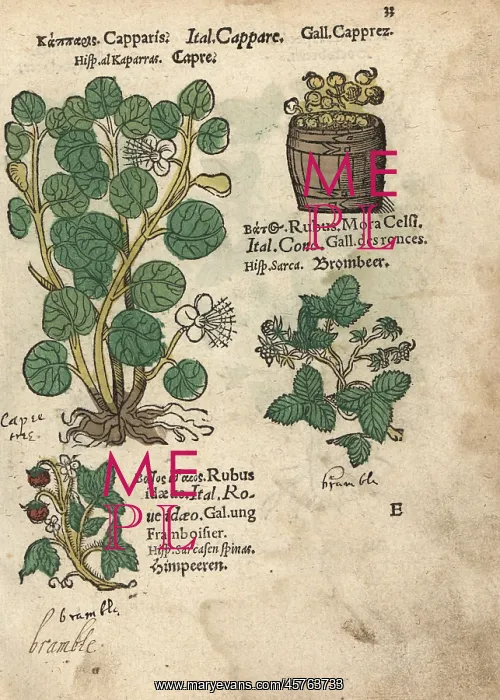 33
Κάππαρις. Capparis. Ital. Cappare. Gall. Capprez.
Hisp. al Kaparras. Capre.
ME
PL
Βάτος. Rubus. Mora Celsi.
Ital. Gall. des ronces.
Hisp. Sarca. Brombeer.
Capre
tree
bramble
E
ME
PL
Rubus
Ital. Ro-
ue idæo. Gal. ung
Framboisier.
Hisp. Sarcas en spinas.
Himpeeren.
bramble.
bramble
www.maryevans.com/45763733